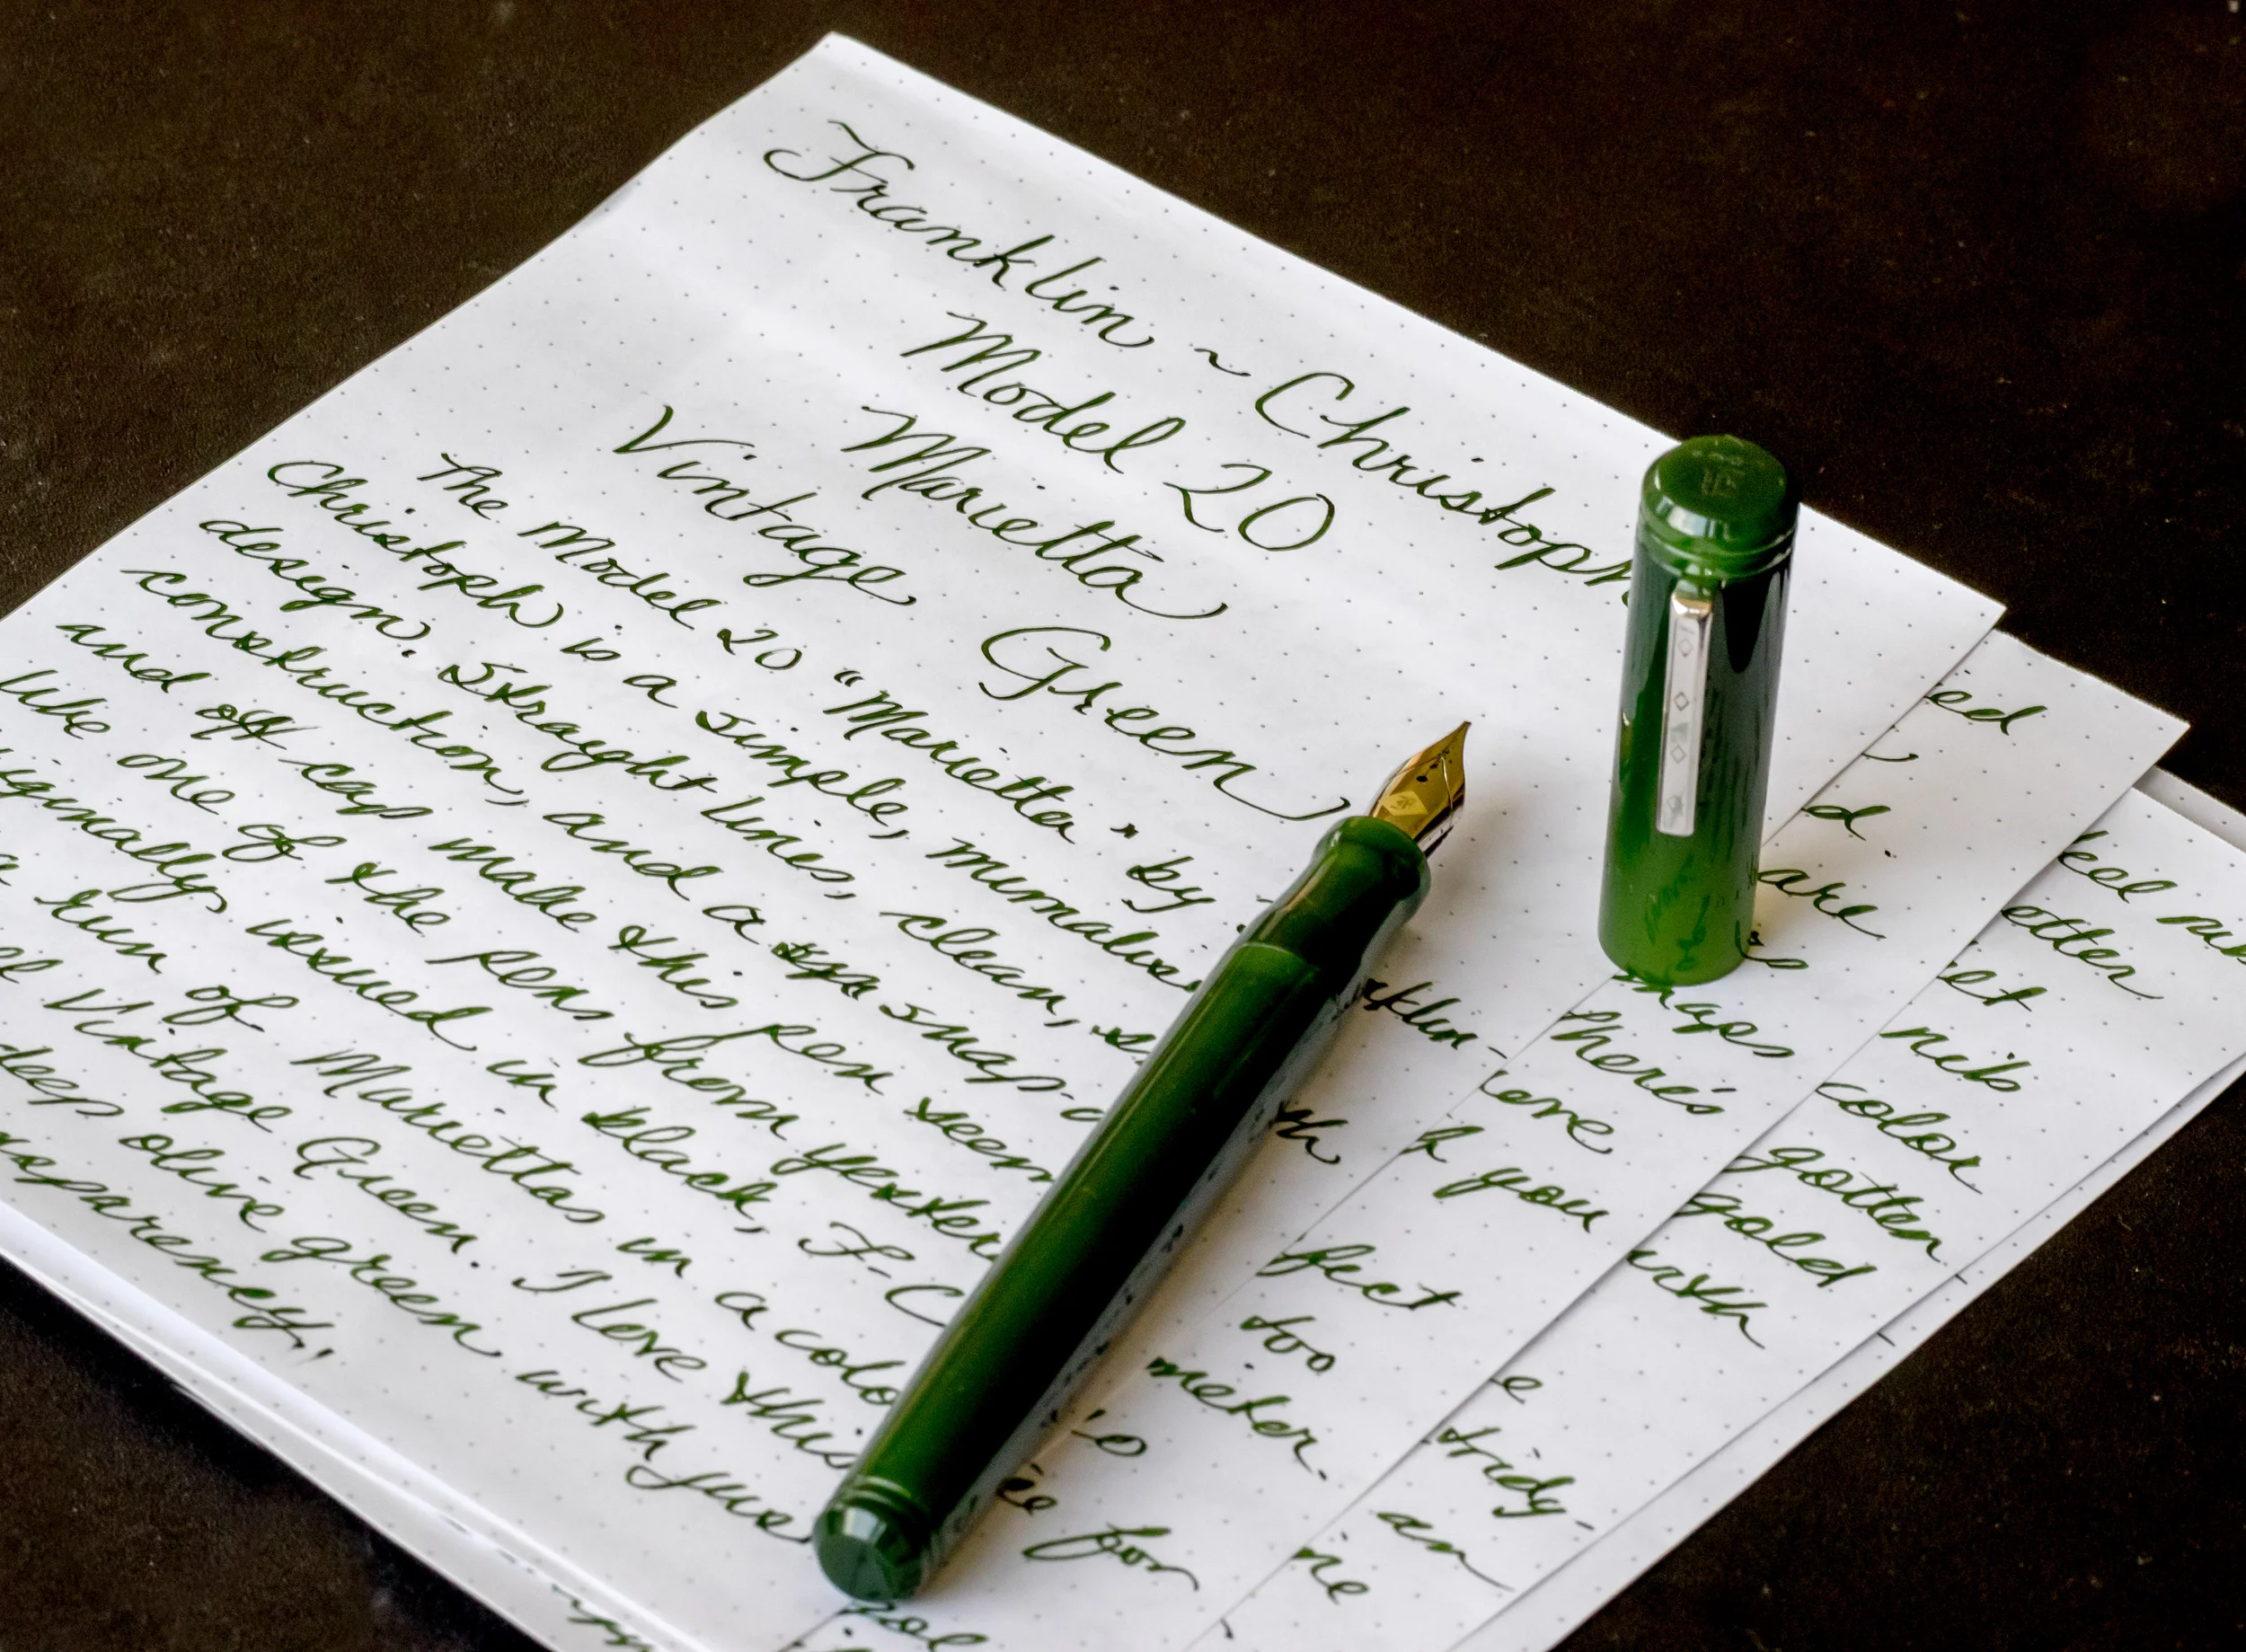 Franklin ~ Christoph
Model 20
Marietta
Vintage Green
The Model 20 "Marietta" by
klin-
Christoph is a simple, minimalis
design. Straight lines, clean, s
th
construction, and a snap-o
and off cap make this pen seem
like one of the pens from yester
iginally issued in black, F-C
a run of Mariettas in a colo
Vintage Green. I love this
deep olive green with jus
nsparency.
ed
d
are
There's
ere
f you
fect
too
meter.
for
eel
etter
et
nib
color
gotten
gold
with
e
tridg-
an
ne